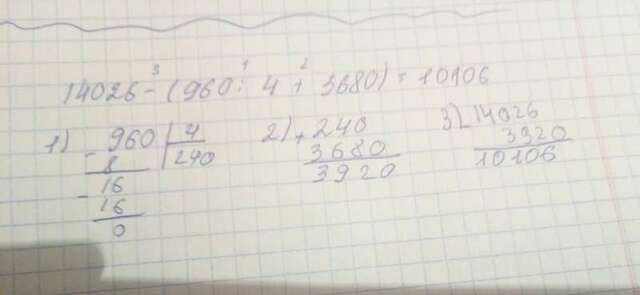 3 1 2
14026 - (960 : 4 + 3680) = 10106
1) 960 | 4 2) + 240 3) - 14026
- 8 240 3680 3920
16 3920 10106
- 16
0